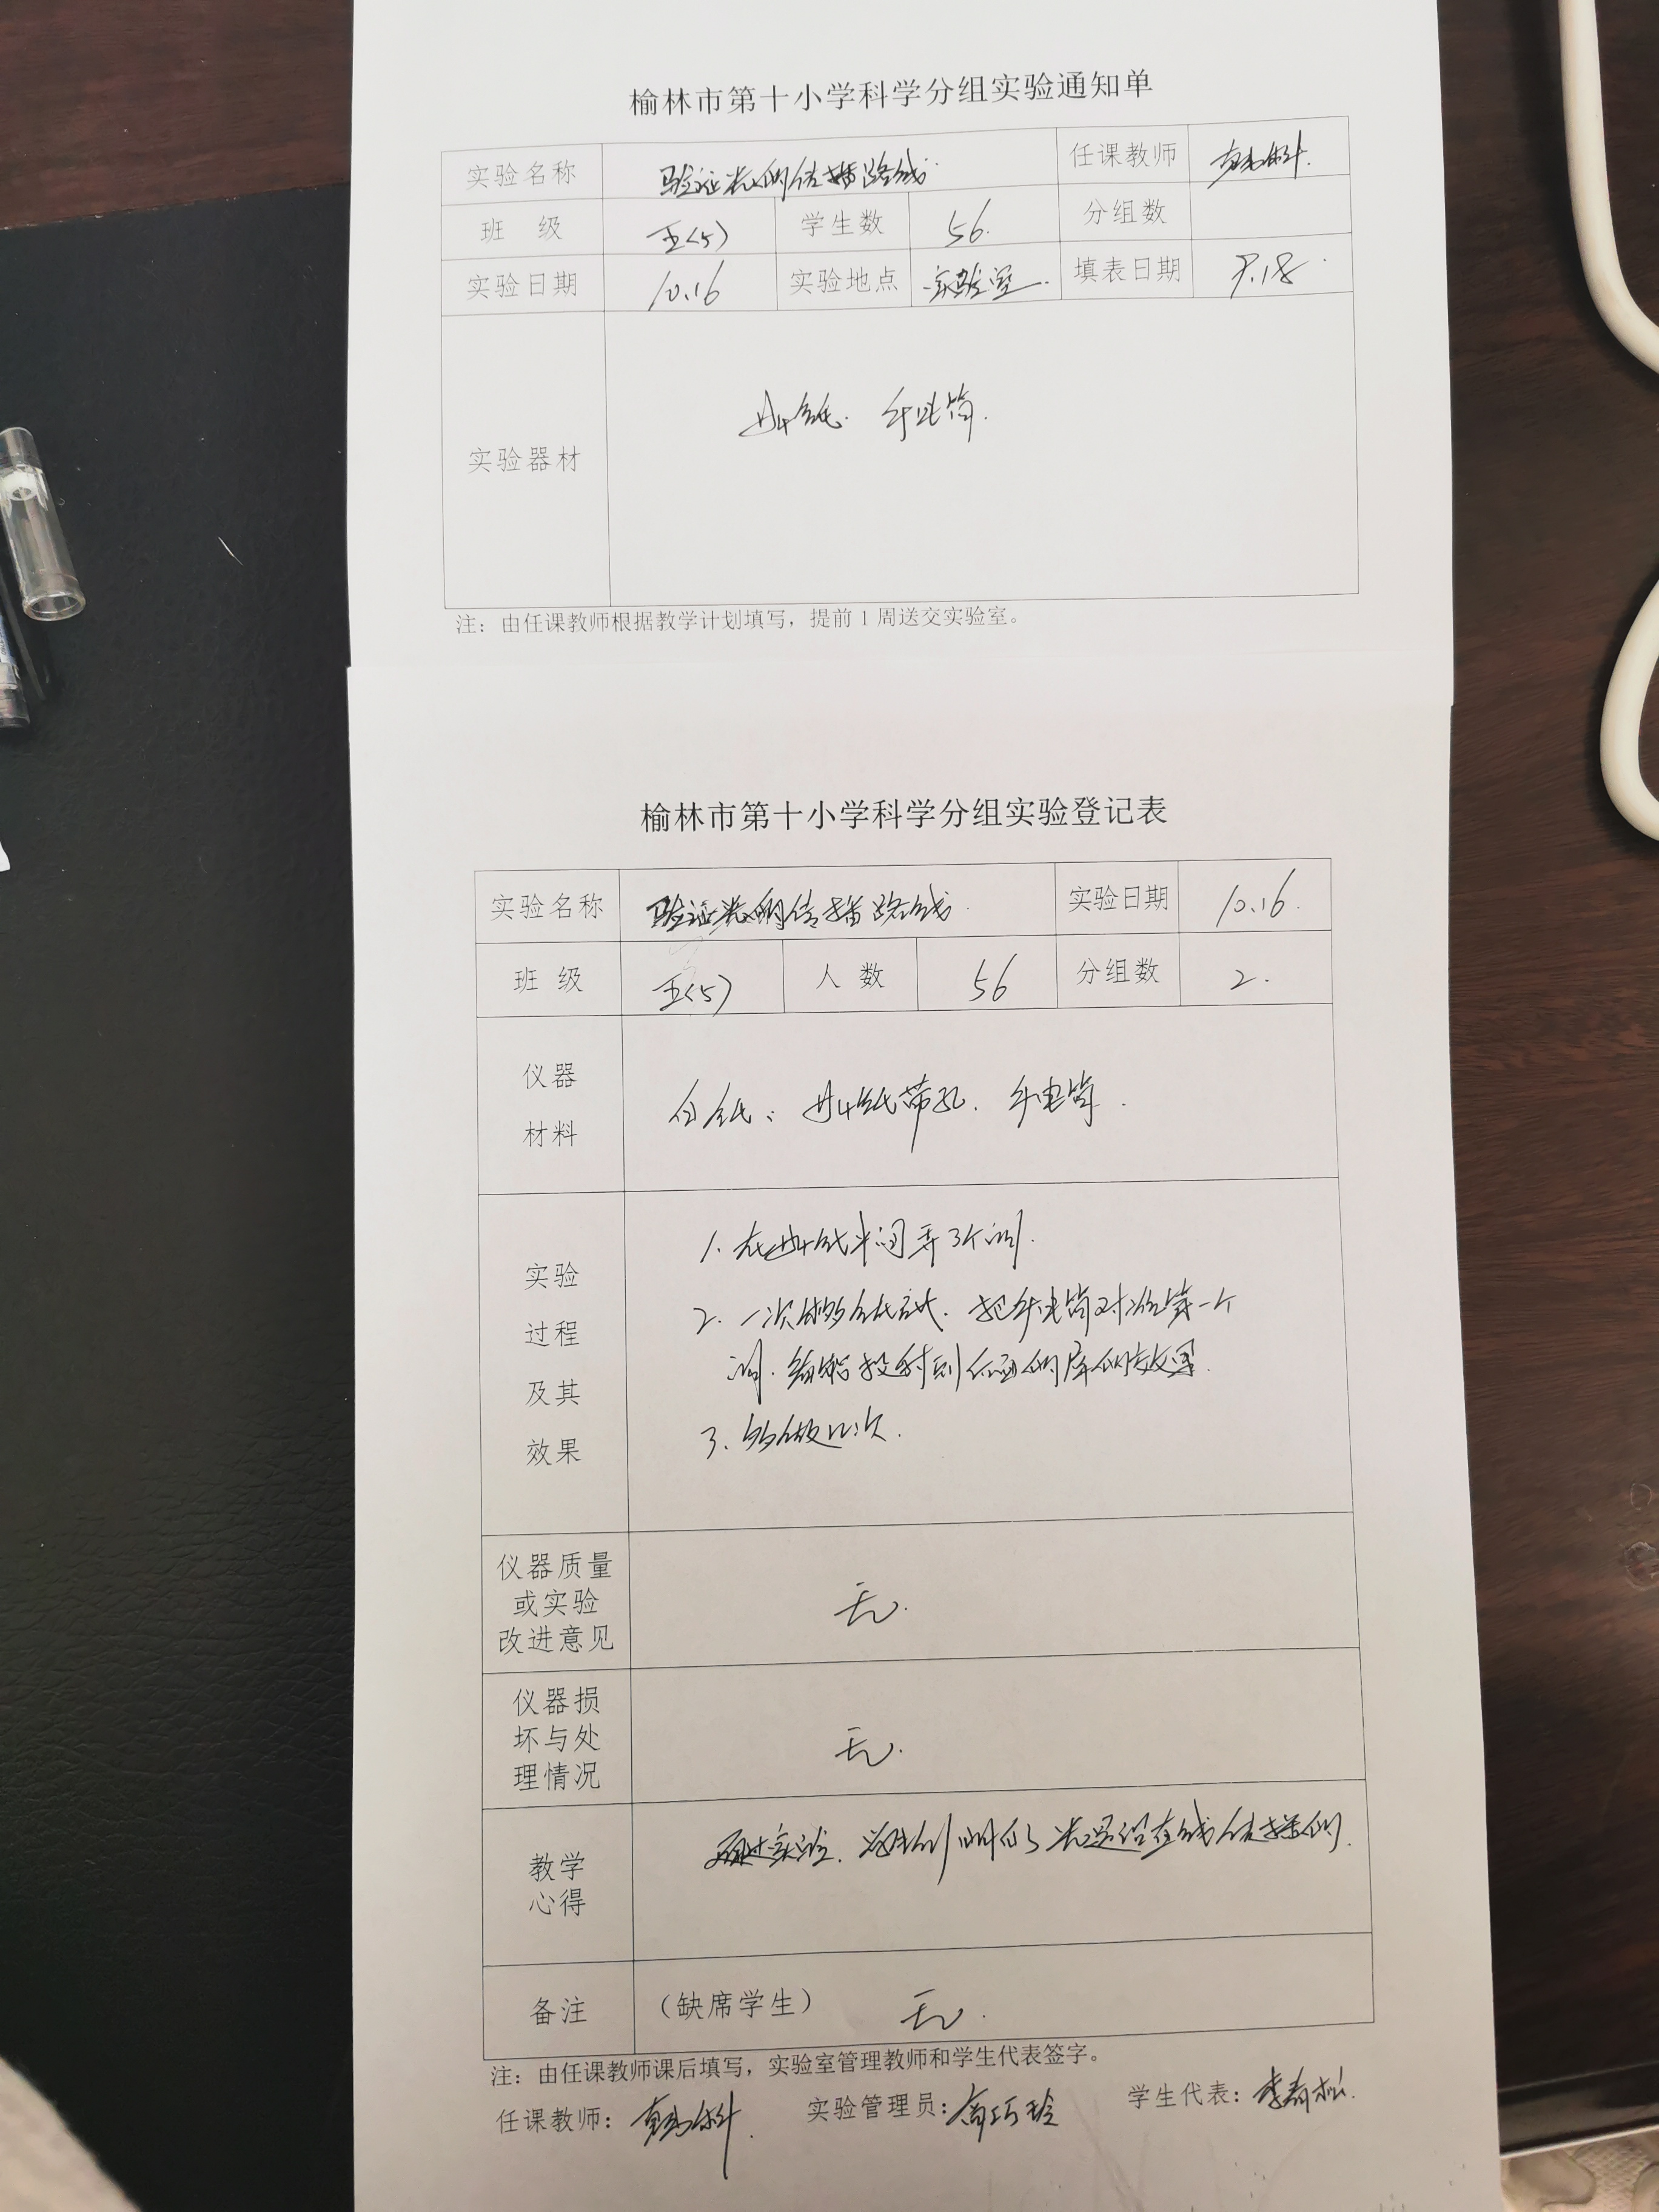 榆林市第十小学科学分组实验通知单
实验名称 验证光的传播路线 任课教师
班 级 五(5) 学生数 56. 分组数
实验日期 10.16 实验地点 实验室. 填表日期 9.18
实验器材 卡纸. 手电筒.
注：由任课教师根据教学计划填写，提前1周送交实验室。
榆林市第十小学科学分组实验登记表
实验名称 验证光的传播路线 实验日期 10.16.
班 级 五(5) 人 数 56 分组数 2.
仪器
材料
白纸、卡纸带孔. 手电筒.
实验
过程
及其
效果
1. 在卡纸中间弄3个洞.
2. 一次 把手电筒对准第一个
洞. 投射到 的屏的效果.
3、多做几次.
仪器质量
或实验
改进意见
无.
仪器损
坏与处
理情况
无.
教学
心得
通过实验. 明白了光是沿直线传播的.
备注 （缺席学生） 无.
注：由任课教师课后填写，实验室管理教师和学生代表签字。
任课教师： 实验管理员：高巧玲 学生代表：李